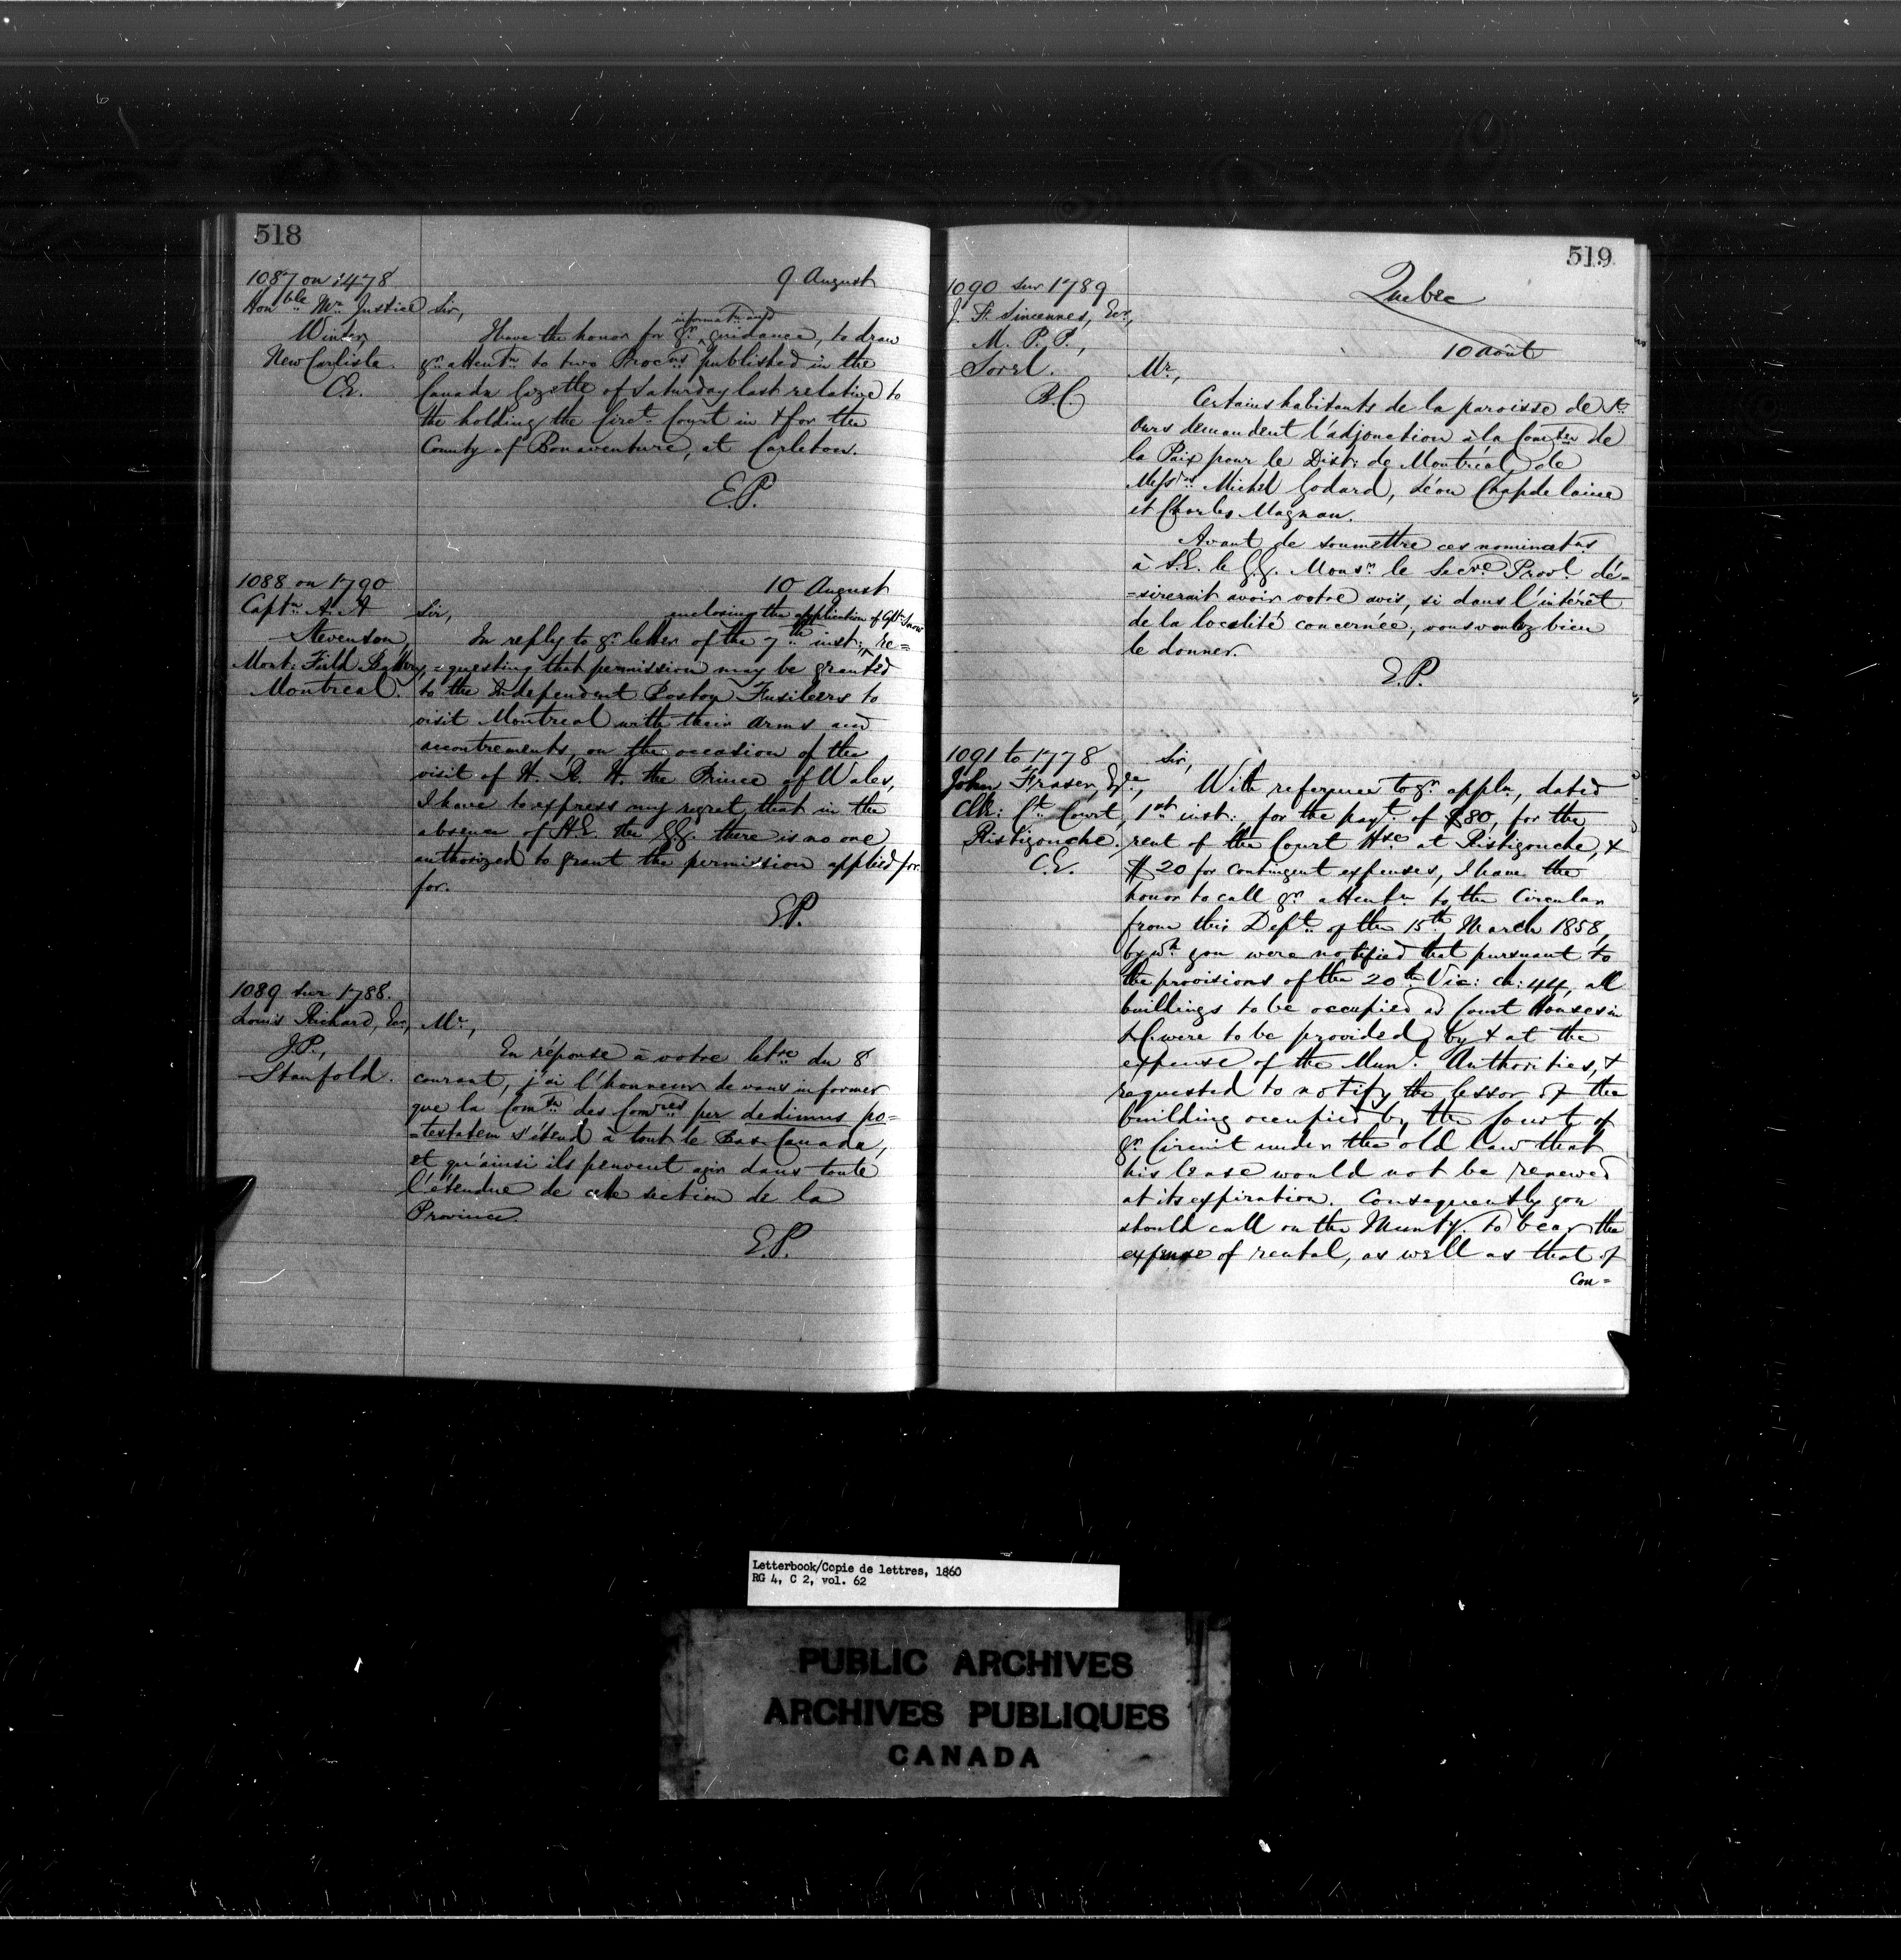 518
1087 on 1478
Hon^ble Mr. Justice
Winter,
New Carlisle
C.E.
9 August
Sir,
I have the honor for yr. information and guidance, to draw
yr. attentn. to two Procns. published in the
Canada Gazette of Saturday last relative to
the holding the Circt. Court in & for the
County of Bonaventure, at Carleton.
E.P.
1088 on 1790
Captn. A. A
Stevenson,
Mont: Field Battery,
Montreal.
10 August
Sir,
In reply to yr. letter of the 7th inst:, enclosing the application of Captn. Snow re=
=questing that permission may be granted
to the Independent Boston Fusileers to
visit Montreal with their arms and
accoutrements, on the occasion of the
visit of H. R. H. the Prince of Wales,
I have to express my regret that in the
absence of H.E. the G.G. there is no one
authorized to grant the permission applied for
for.
E.P.
1089 sur 1788.
Louis Richard, Ecr.,
J.P.,
Stanfold.
Mr.,
En réponse à votre letre du 8
courant, j'ai l'honneur de vous informer
que la Comsn. des Comres per dedimus po=
=testatem s'étend à tout le Bas-Canada,
et qu'ainsi ils peuvent agir dans toute
l'étendue de cette section de la
Province.
E.P.
519
Quebec
10 août
1090 sur 1789
J. F. Sincennes, Ecr.,
M. P. P.,
Sorel.
B.C.
Mr.,
Certains habitants de la paroisse de St.
Ours demandent l'adjonction à la Comson de
la Paix pour le Dist: de Montréal, de
Messrs. Michel Godard, Léon Chapdelaine
et Charles Magnan.
Avant de soumettre ces nominatns
à S.E. le G.G. Monsr. le Secre. Provl. dé=
=sirerait avoir votre avis, si dans l'intérêt
de la localité concernée, vous voulez bien
le donner.
E.P.
1091 to 1778
John Fraser, Eqre,
Clk: Ct. Court,
Ristigouche.
C.E.
Sir,
With reference to yr. appln., dated
1st inst: for the payt. of $80, for the
rent of the Court Hse. at Ristigouche, &
$20 for contingent expenses, I have the
honor to call yr. attentn. to the Circular
from this Dept. of the 15th March 1858,
by wh. you were notified that pursuant to
the provisions of the 20th Vic: ch: 44, all
buildings to be occupied as Court Houses in
L.C. were to be provided by & at the
expense of the Mun!. Authorities, &
requested to notify the lessor of the
building occupied by the Court of
yr. Circuit under the old law that
his lease would not be renewed
at its expiration. Consequently you
should call on the Munty. to bear the
expense of rental, as well as that of
con=
Letterbook/Copie de lettres, 1860
RG 4, C 2, vol. 62
PUBLIC ARCHIVES
ARCHIVES PUBLIQUES
CANADA